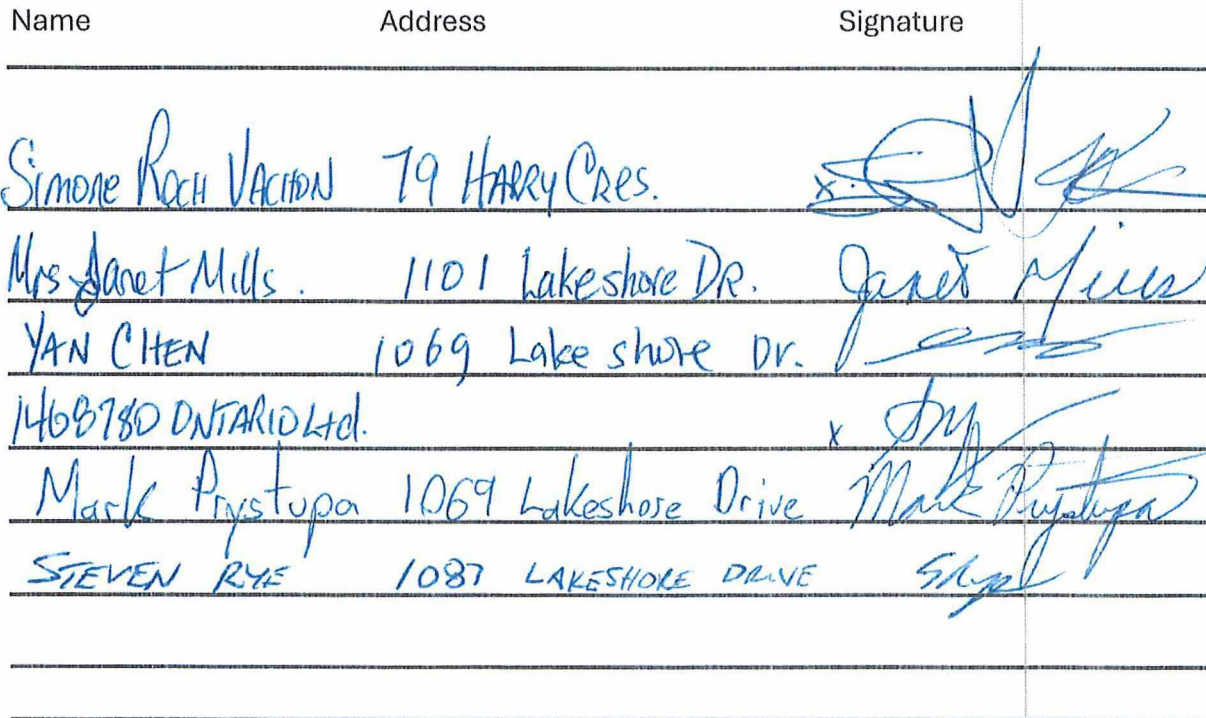 Name Address Signature
Simone Roch Vachon 79 Harry Cres. x
Mrs Janet Mills. 1101 Lakeshore DR. Janet Mills
YAN CHEN 1069 Lake shore Dr.
1468780 ONTARIO Ltd. x
Mark Prystupa 1069 Lakeshore Drive Mark Prystupa
STEVEN RYE 1087 LAKESHORE DRIVE